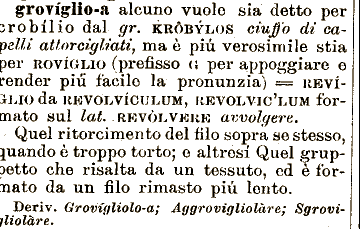 grovíglio-a alcuno vuole sia detto per
crobílio dal gr. KRÔBÝLOS ciuffo di ca-
pelli attorcigliati, ma è piú verosimile stia
per ROVÍGLIO (prefisso G per appoggiare e
render piú facile la pronunzia) = REVÍ-
GLIO da REVOLVÍCULUM, REVOLVIC'LUM for-
mato sul lat. REVÒLVERE avvolgere.
Quel ritorcimento del filo sopra se stesso,
quando è troppo torto; e altresí Quel grup-
petto che risalta da un tessuto, ed è for-
mato da un filo rimasto piú lento.
Deriv. Grovígliolo-a; Aggrovigliolàre; Sgrovi-
gliolàre.